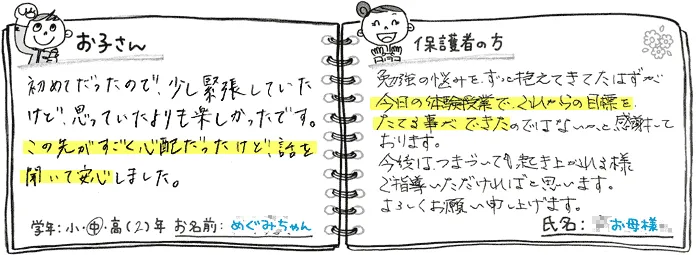 お子さん
初めてだったので、少し緊張していた
けど、思っていたよりも楽しかったです。
この先がすごく心配だったけど、話を
聞いて安心しました。
学年:小・中・高(2)年 お名前:めぐみちゃん
保護者の方
勉強の悩みをずっと抱えてきてたはずが
今日の体験授業で、これからの目標を
たてる事ができたのではないかと感謝して
おります。
今後は、つまづいても起き上がれる様
ご指導いただければと思います。
よろしくお願い申し上げます。
氏名: お母様